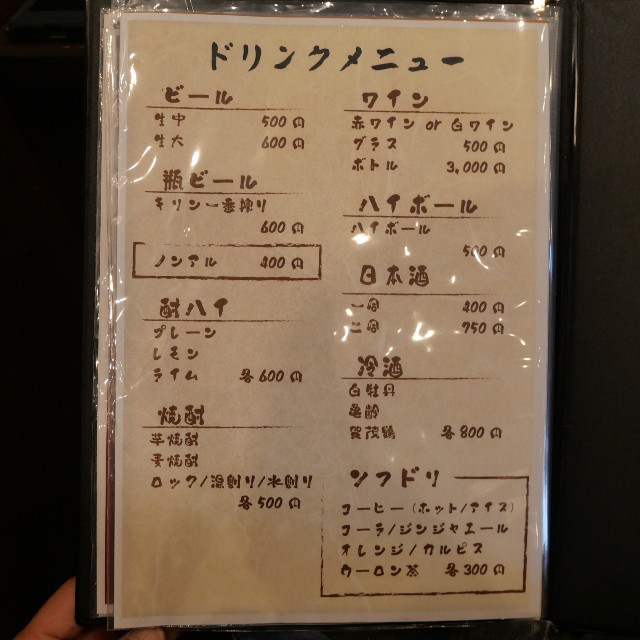 ドリンクメニュー
ビール
生中 500円
生大 600円
瓶ビール
キリン一番搾り
600円
ノンアル 400円
酎ハイ
プレーン
レモン
ライム 各600円
焼酎
芋焼酎
麦焼酎
ロック/湯割り/水割り
各500円
ワイン
赤ワイン or 白ワイン
グラス 500円
ボトル 3,000円
ハイボール
ハイボール
500円
日本酒
一合 400円
二合 750円
冷酒
白牡丹
亀齢
賀茂鶴 各800円
ソフドリ
コーヒー(ホット/アイス)
コーラ/ジンジャエール
オレンジ/カルピス
ウーロン茶 各300円